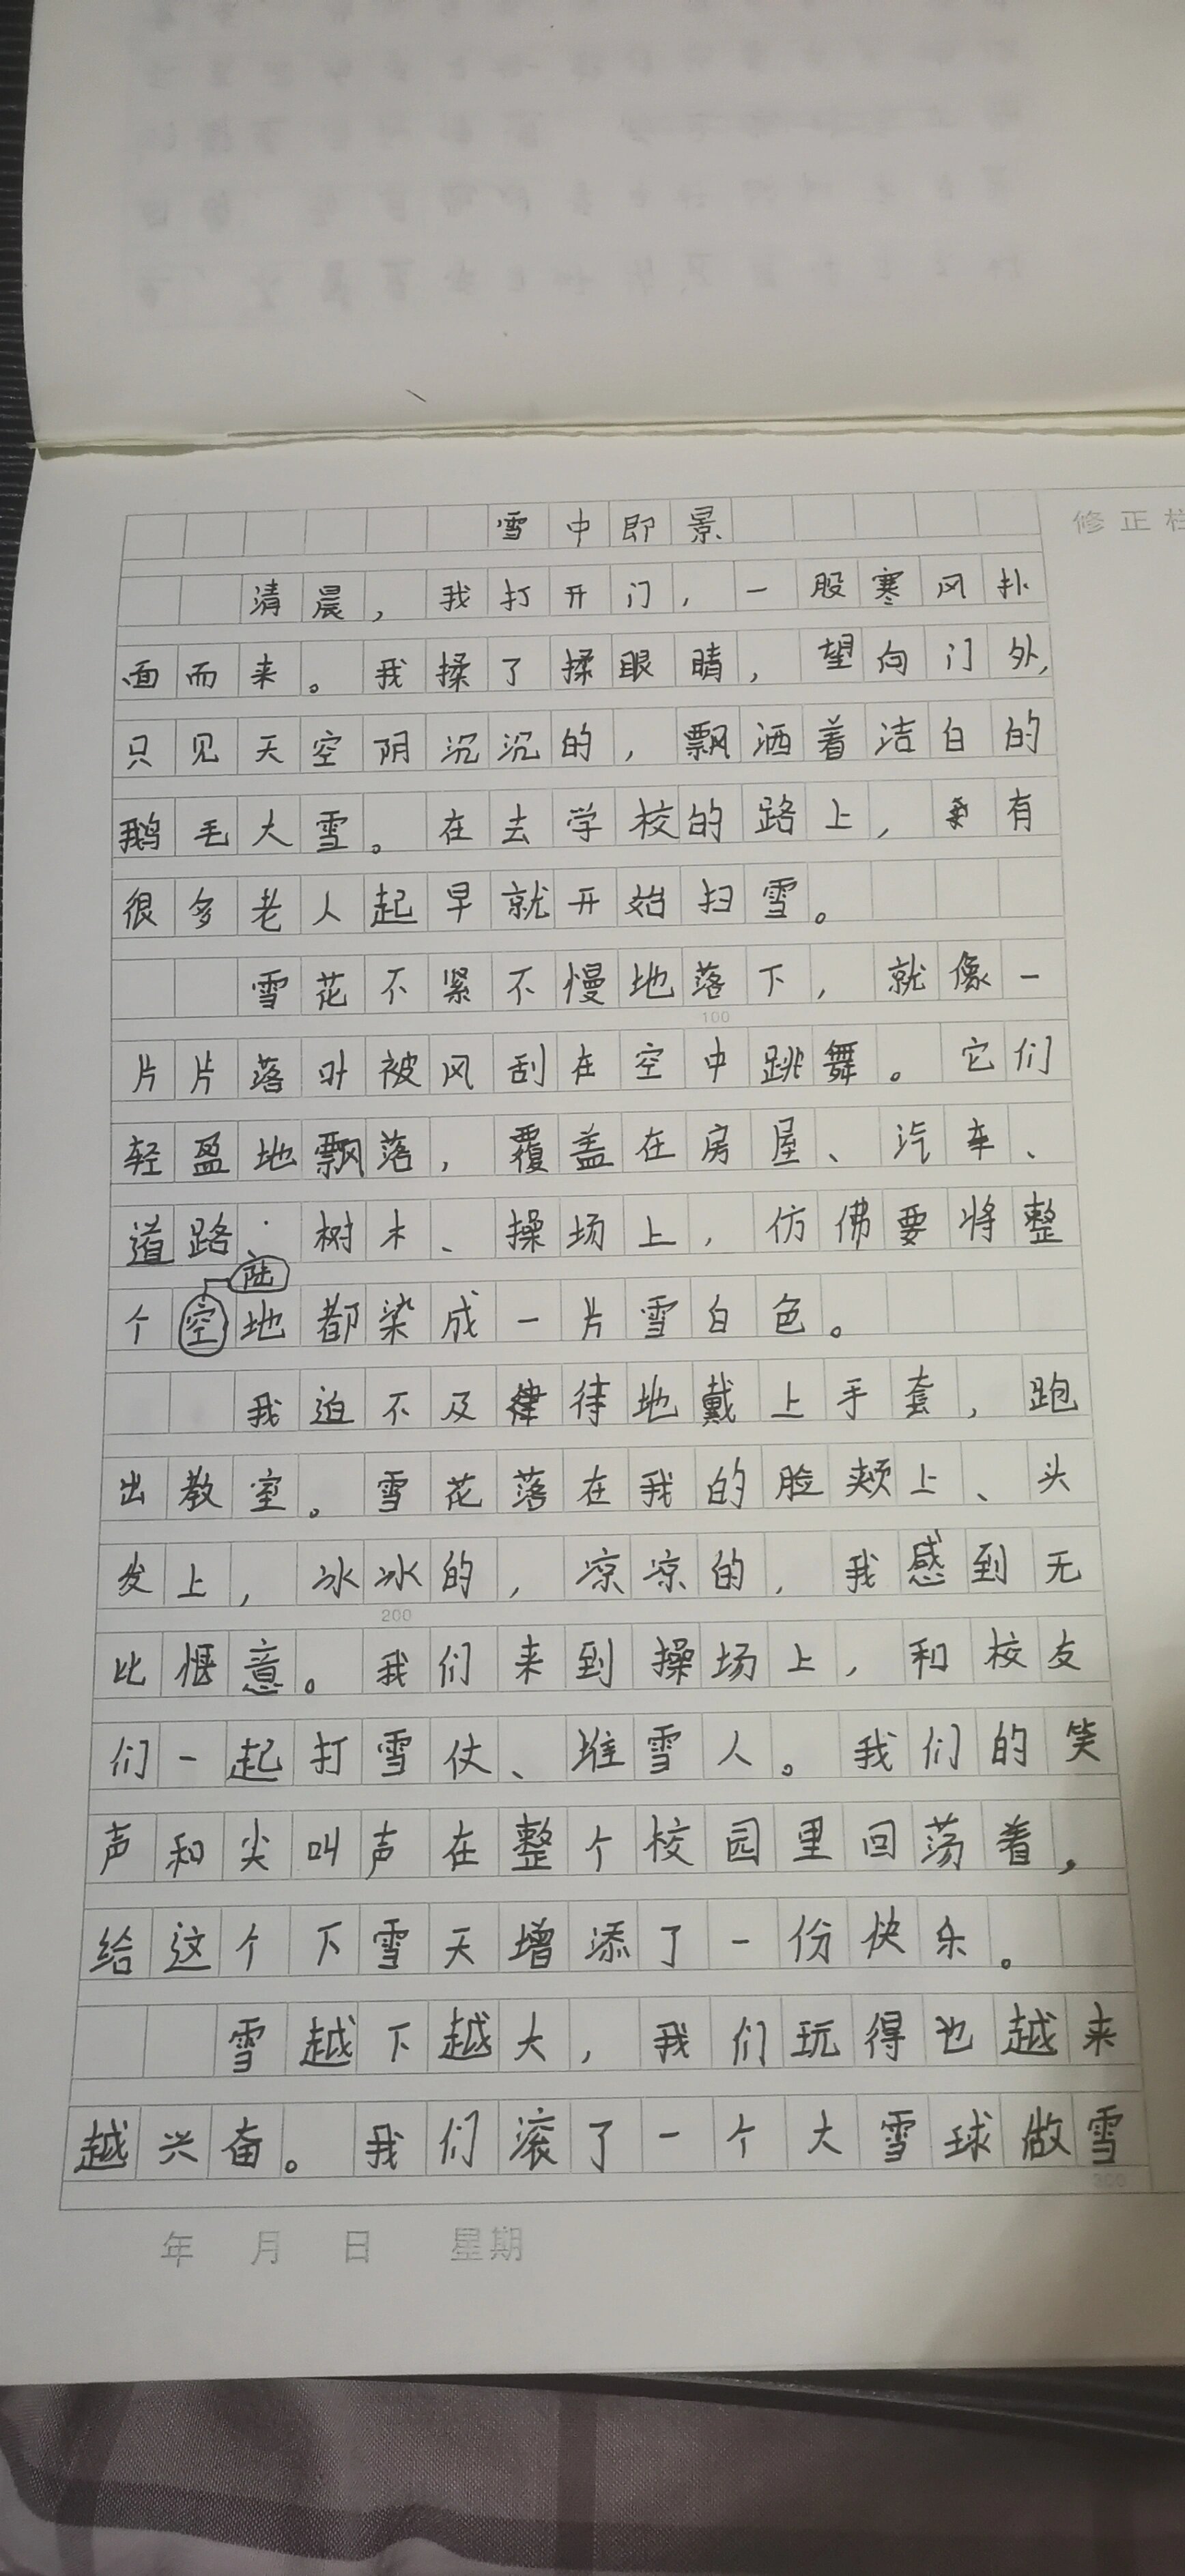 雪中即景
修正栏
清晨，我打开门，一股寒风扑
面而来。我揉了揉眼睛，望向门外，
只见天空阴沉沉的，飘洒着洁白的
鹅毛大雪。在去学校的路上，有
很多老人起早就开始扫雪。
雪花不紧不慢地落下，就像一
100
片片落叶被风刮在空中跳舞。它们
轻盈地飘落，覆盖在房屋、汽车、
道路、树木、操场上，仿佛要将整
陆
个空地都染成一片雪白色。
我迫不及待地戴上手套，跑
出教室。雪花落在我的脸颊上、头
发上，冰冰的，凉凉的，我感到无
200
比惬意。我们来到操场上，和校友
们一起打雪仗、堆雪人。我们的笑
声和尖叫声在整个校园里回荡着，
给这个下雪天增添了一份快乐。
雪越下越大，我们玩得也越来
越兴奋。我们滚了一个大雪球做雪
300
年 月 日 星期